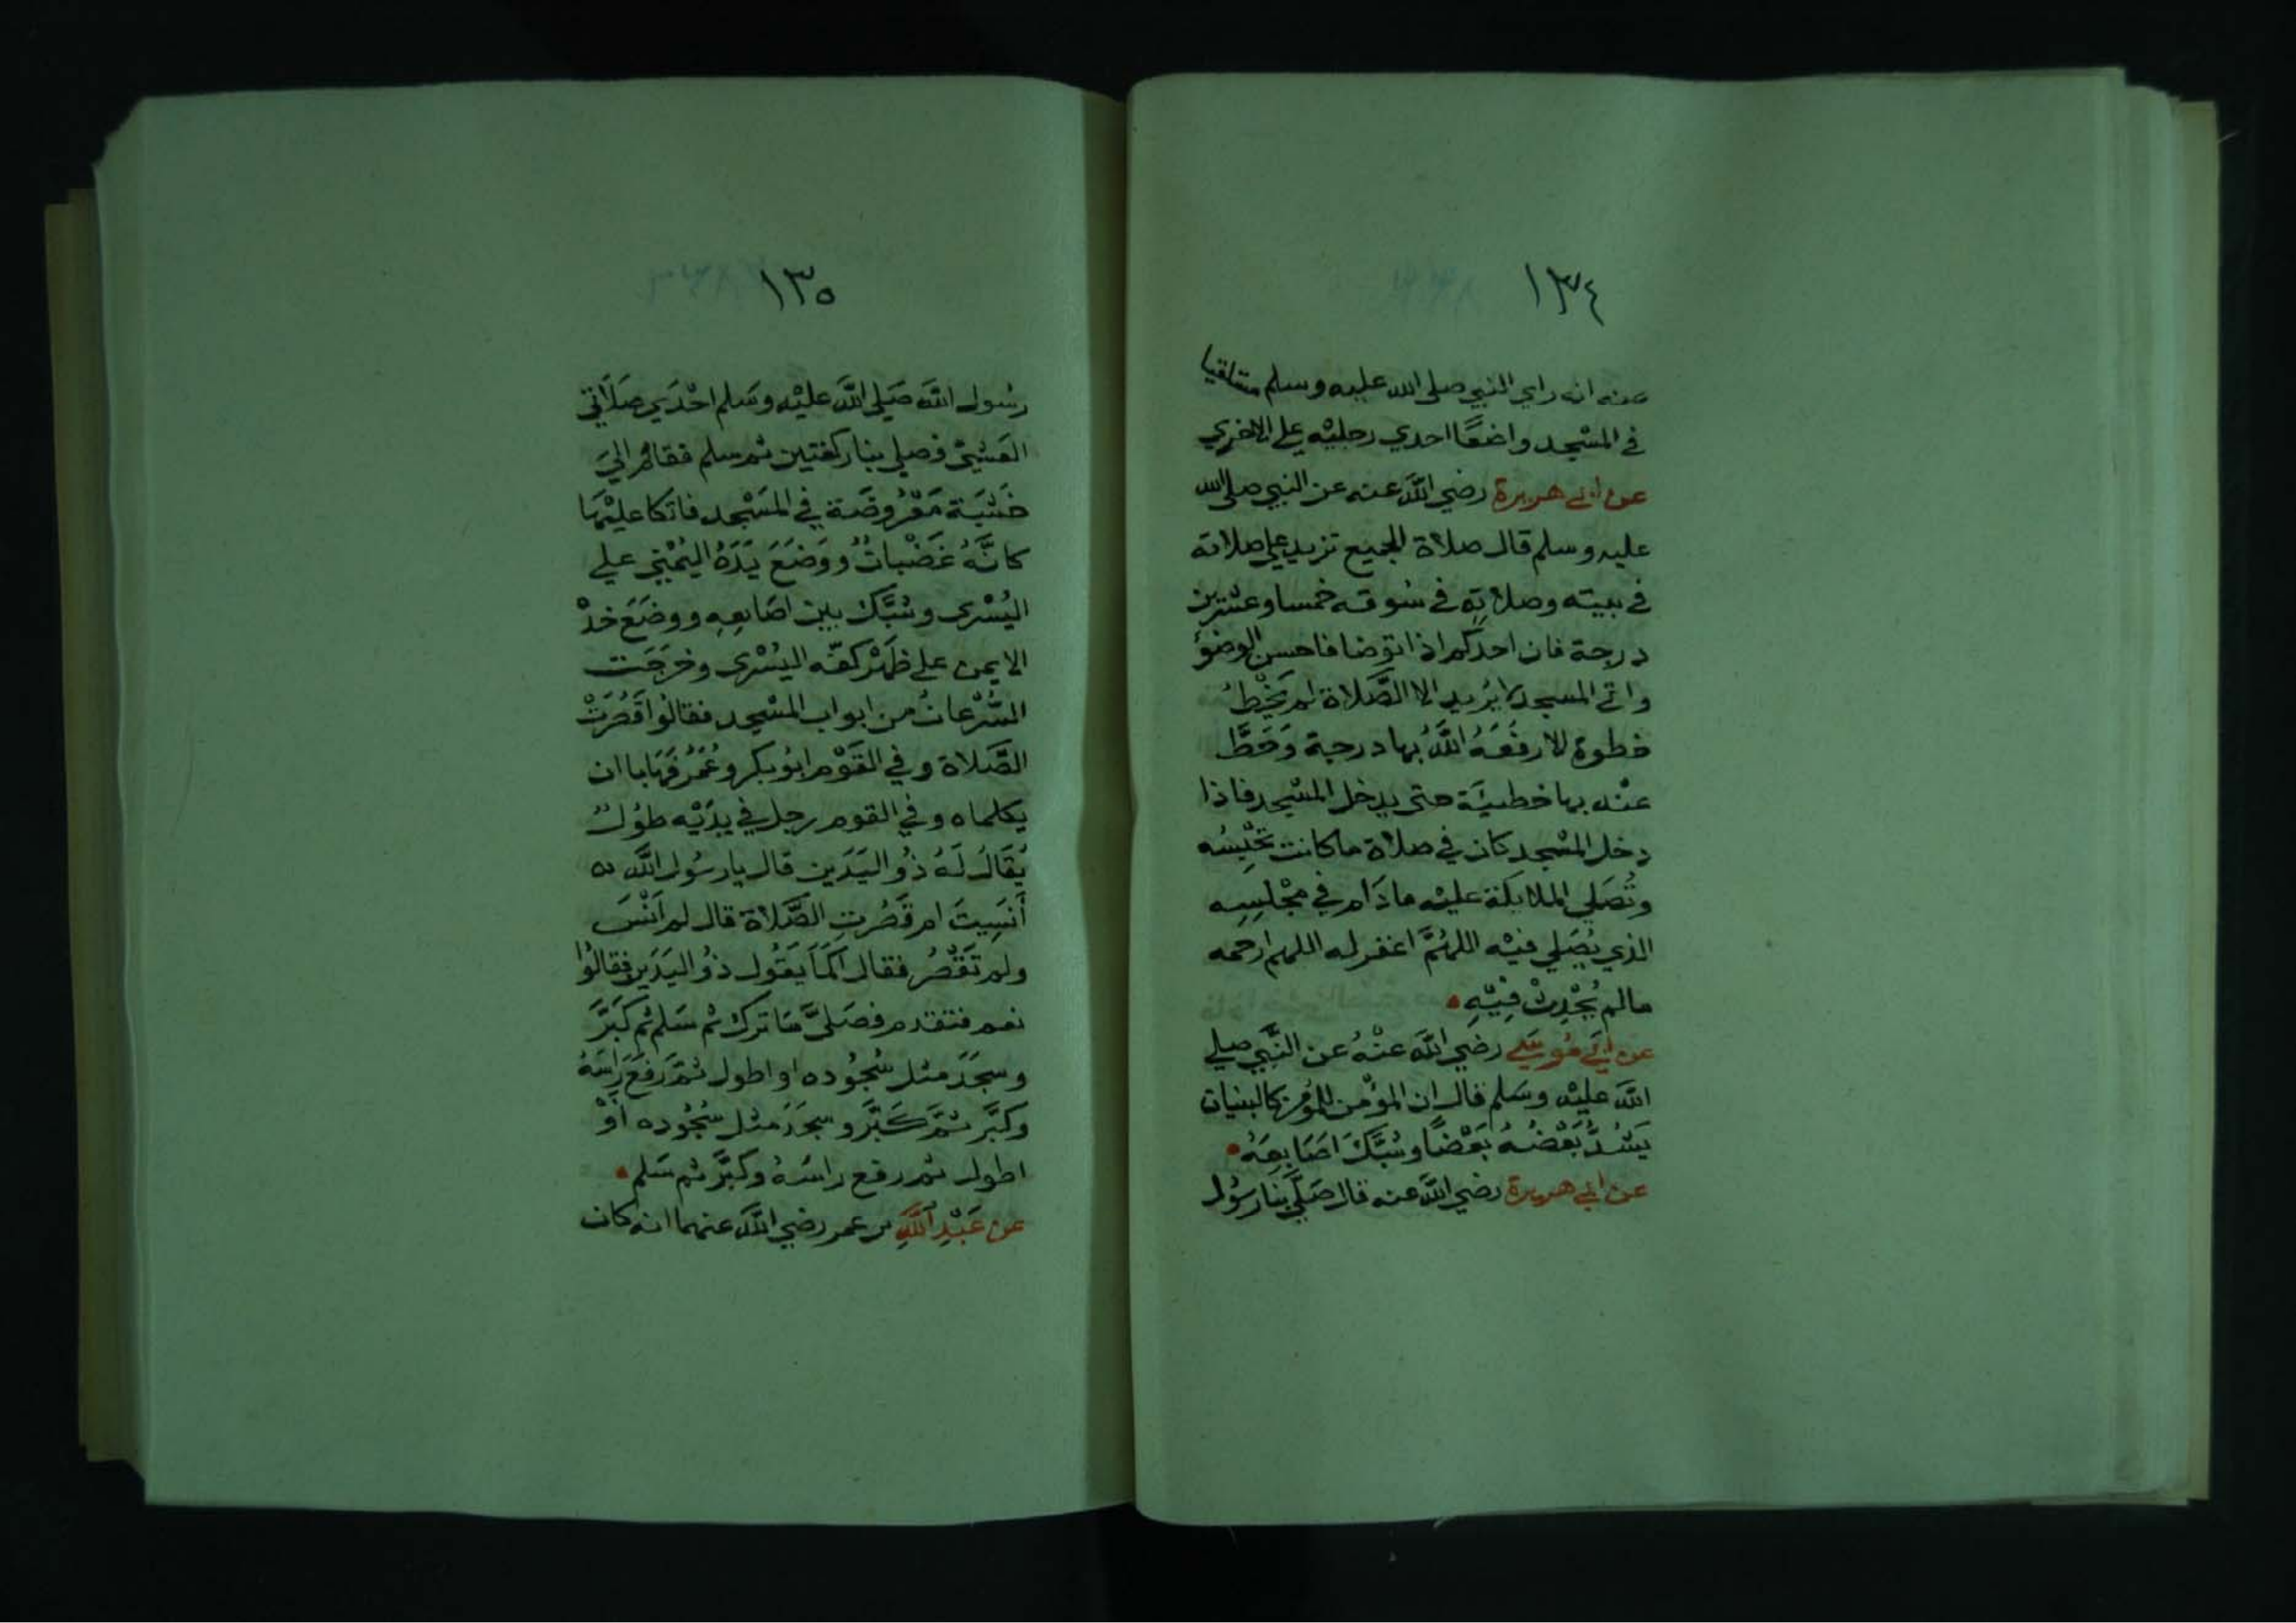 ١٣٤
عنه انه راي النبي صلى الله عليه وسلم متلقيا
في المسْجد واضعًا احدي رجليْه علي الاخري
عن ابي هريرة رضي الله عنه عن النبي صلى الله
عليه وسلم قال صلاة الجميع تزيد علي صلاته
في بيته وصلاتِه في سُوقه خمسا وعشرين
درجة فان احدكم اذا توضا فاحسن الوضوٴ
واتي المسجد لا يُريد الا الصَّلاة لم يَخْطُ
خطوة الا رفَعَهُ اللَّهُ بها درجة وَحَطَّ
عنْه بها خطيئَة حتى يدخل المسْجد فاذا
دخل المسْجد كان في صلاة ما كانت تحْبِسُه
وتُصَلي الملايكة عليْه مادَام في مجْلِسِه
الذي يُصَلي فيْه اللهُمَّ اغفر له اللهم ارحمه
مالم يُحْدِثْ فِيْهِ
عن ابَي مُوسَي رضي اللَّه عنْهُ عن النَّبي صلي
اللَّه عليْه وسَلم قال ان المؤْمن للمُؤمن كالبنيان
يَشُدُّ بَعْضُهُ بَعْضًا وشبَّكَ اصَابِعَهُ
عن ابي هريرة رضي اللَّه عنه قال صَلَّي بنا رسُول
١٣٥
رسُول اللَّه صَلي اللَّه عليْه وسَلم احْدَي صَلَاتي
العَشيّ فصلي بنا ركعتين ثم سلم فقام الَي
خَشَبَة مَعْرُوضَة في المَسْجد فاتكا عليْهَا
كانَّهُ غَضْبانٌ ووَضَعَ يَدَهُ اليُمْني علي
اليُسْرى وشَبَّك بين اصَابعِهِ ووضَعَ خدْ
الايمن علي ظَهْر كفّه اليُسْرى وخرَجَت
السَّرْعانُ من ابواب المسْجد فقالُوا قَصُرَتْ
الصَّلاة وفي القَوْم ابُو بكر وعُمَرُ فهَابا ان
يكلماه وفي القوم رجل في يدَيْه طوُلٌ
يُقَالُ لَهُ ذُو اليَدَين قال يا رسُول اللَّه
أنَسِيتَ ام قَصُرتِ الصَّلاة قال لم اَنْسَ
ولم تَقْصُر فقال اَكمَا يَقُول ذُو اليَدَين فقالُوا
نعم فتقدم فصَليَّ مَا ترك ثم سَلم ثم كَبَرَّ
وسجَدَ مثل سُجُوده او اطول ثمَّ رَفَعَ رَاسَهُ
وكَبَّر ثمَّ كَبَّر وسجَدَ مثل سُجُوده اَوْ
اطول ثم رفع راسَهُ وكبَّر ثم سَلم
عن عَبْدِ اللَّهِ بن عمر رضي اللَّه عنهما انه كان